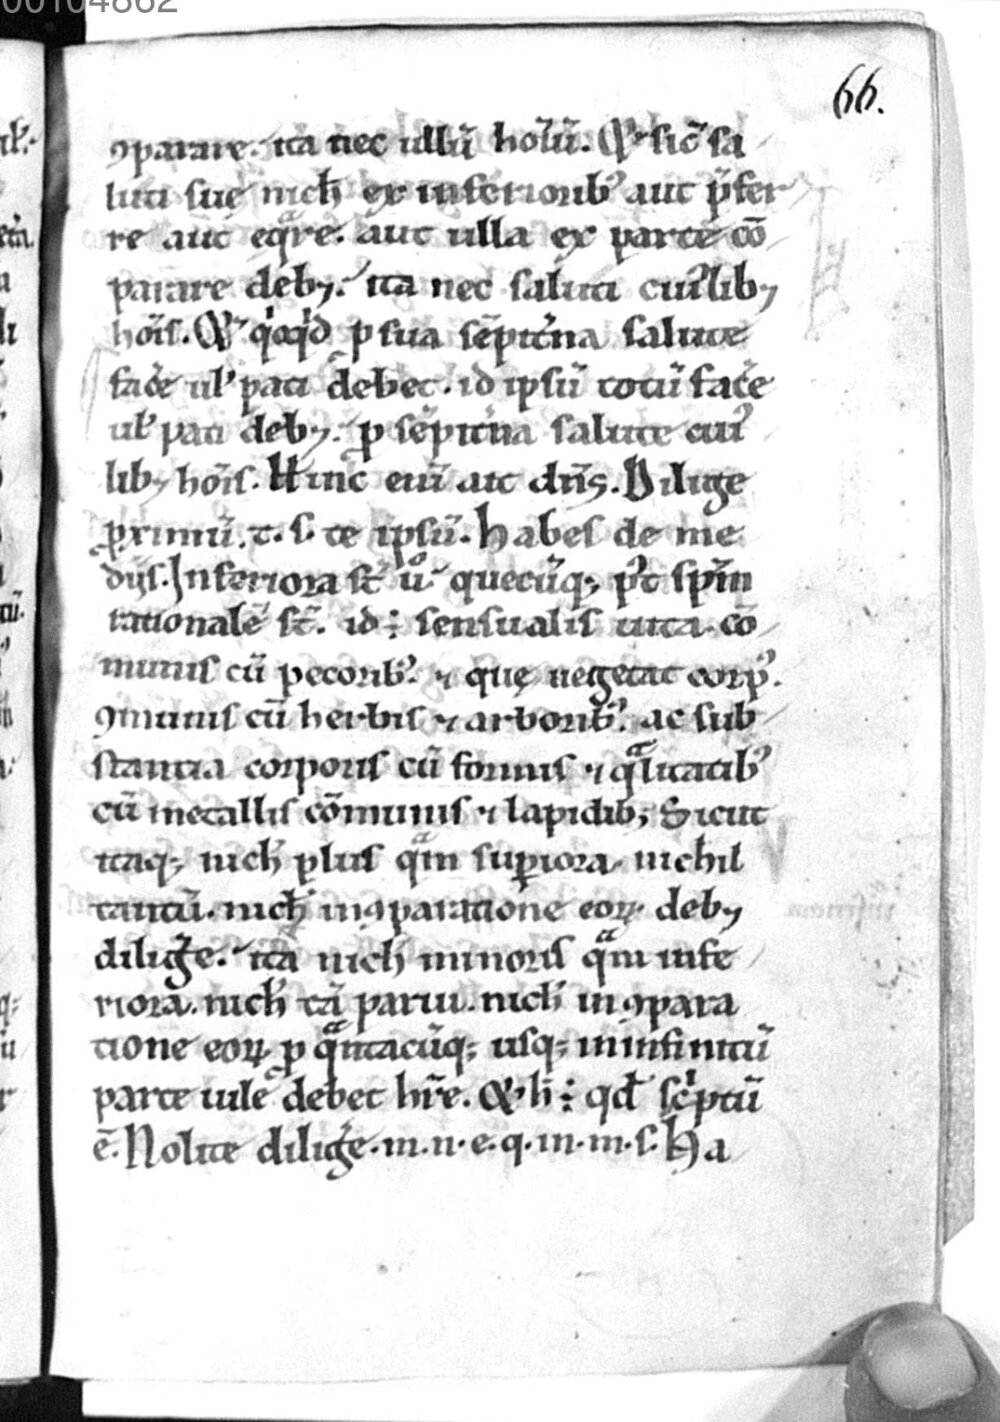 00104862
66.
ꝯparare. ita nec ullū hoīū. Et sic̄ sa
luti suę nich̄ ex inferiorib᾽ aut p̄fer
re aut eq̄re. aut ulla ex parte cō
parare debꝫ. ita nec saluti cui᾽libꝫ
hoīs. Et qͥcqͥd ꝓ sua sēpit̄na salute
fac̄e ul᾽ pati debet. id ipsū totū fac̄e
ul᾽ pati debꝫ. ꝓ sēpit̄na salute cui᾽
libꝫ hoīs. Hinc enī ait dn̄s. Dilige
ꝓximū. t. s. te ipsū. Habes de me
dijs. Inferiora st̄ uͦ quecūqꝫ p᾽t sp̄m
rationalē st̄. id ÷ sensualis uita cō
munis cū pecorib᾽. ⁊ quę uegetat corp᾽.
ꝯmunis cū herbis ⁊ arborib᾽. ac sub
stantia corporis cū formis ⁊ qͣlitatib᾽
cū metallis cōmunis ⁊ lapidibꝫ. Sicut
itaqꝫ nich̄ plus qͣm suꝑiora. nichil
tantū. nich̄ in ꝯparatione eoꝝ debꝫ
diliḡe. ita nich̄ minoris qͣm infe
riora. nich̄ tā parui. nich̄ in ꝯpara
tione eoꝝ ꝓ qͣntacūqꝫ usqꝫ in infinitū
parte uile debet hr̄e. Et h̄ ÷ qd̄ sc̄ptū
ē. Nolite diliḡe. m. n. e. q. in. m. s. Ha